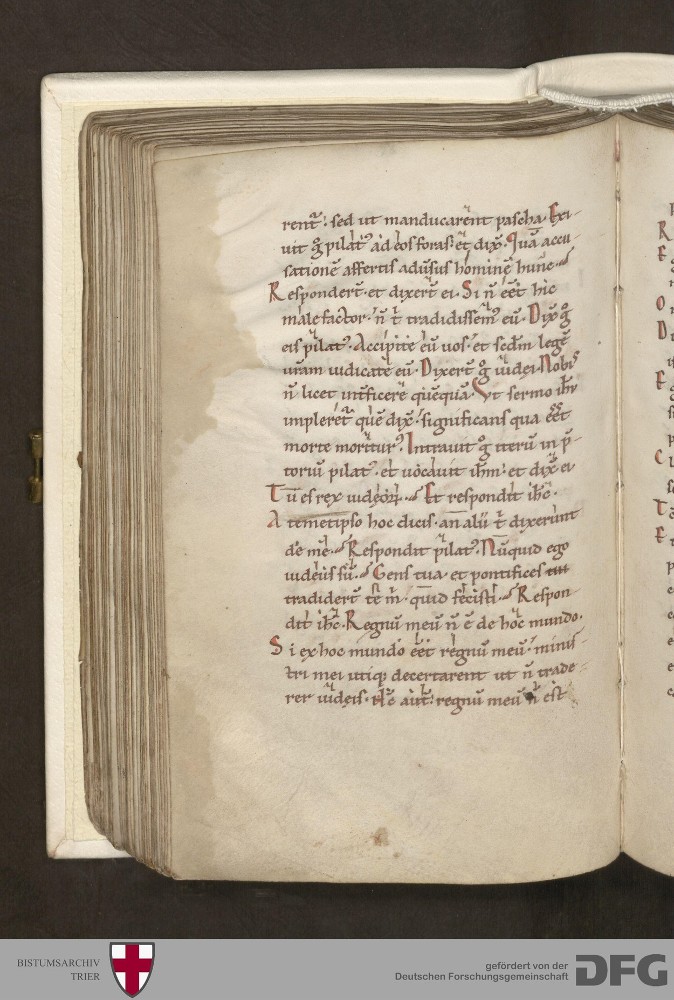 rent̃᷑. sed ut manducarent pascha. Exi-
uit g̊ pilat᷒ ad eos foras. et dix̃. Quā accu-
satione affertis aduersus hominē hunc.
Respondert̄. et dixert̄ ei. Si n̄ eēt hic
malefactor. n̄ t̄ tradidissem᷒ eū. Dix̃ g̊
eis pilat᷒. Accipite eū uos. et scdm̄ legē
urām iudicate eū. Dixert̄ g̊ iudei. Nobis
n̄ licet int̄ficere quēquā. Vt sermo ihu̅
impleret̃ quē dix̃. significans qua eēt
morte moritur᷒. Intrauit g̊ iterū in p̄-
toriū pilat᷒. et uocauit ihm̄. et dix̃ ei
Tu es rex iudeoꝝ. Et respondit ihc̄.
A temetipso hoc dicis. an alii t̄ dixerunt
de me. Respondit pilat᷒. Nūquid ego
iudeus sū. Gens tua. et pontifices
tradidert̄ te m̄. quid fecisti. Respon-
dit ihc̄. Regnū meū n̄ ē de hoc mundo.
Si ex hoc mundo eēt regnū meū. minis-
tri mei utiqꝫ decertarent ut n̄ trade-
rer iudeis. Nc̄ aut̄. regnū meū n̄ est
R
E
O
D
E
C
T
E
BISTUMSARCHIV
TRIER
gefördert von der
Deutschen Forschungsgemeinschaft
DFG